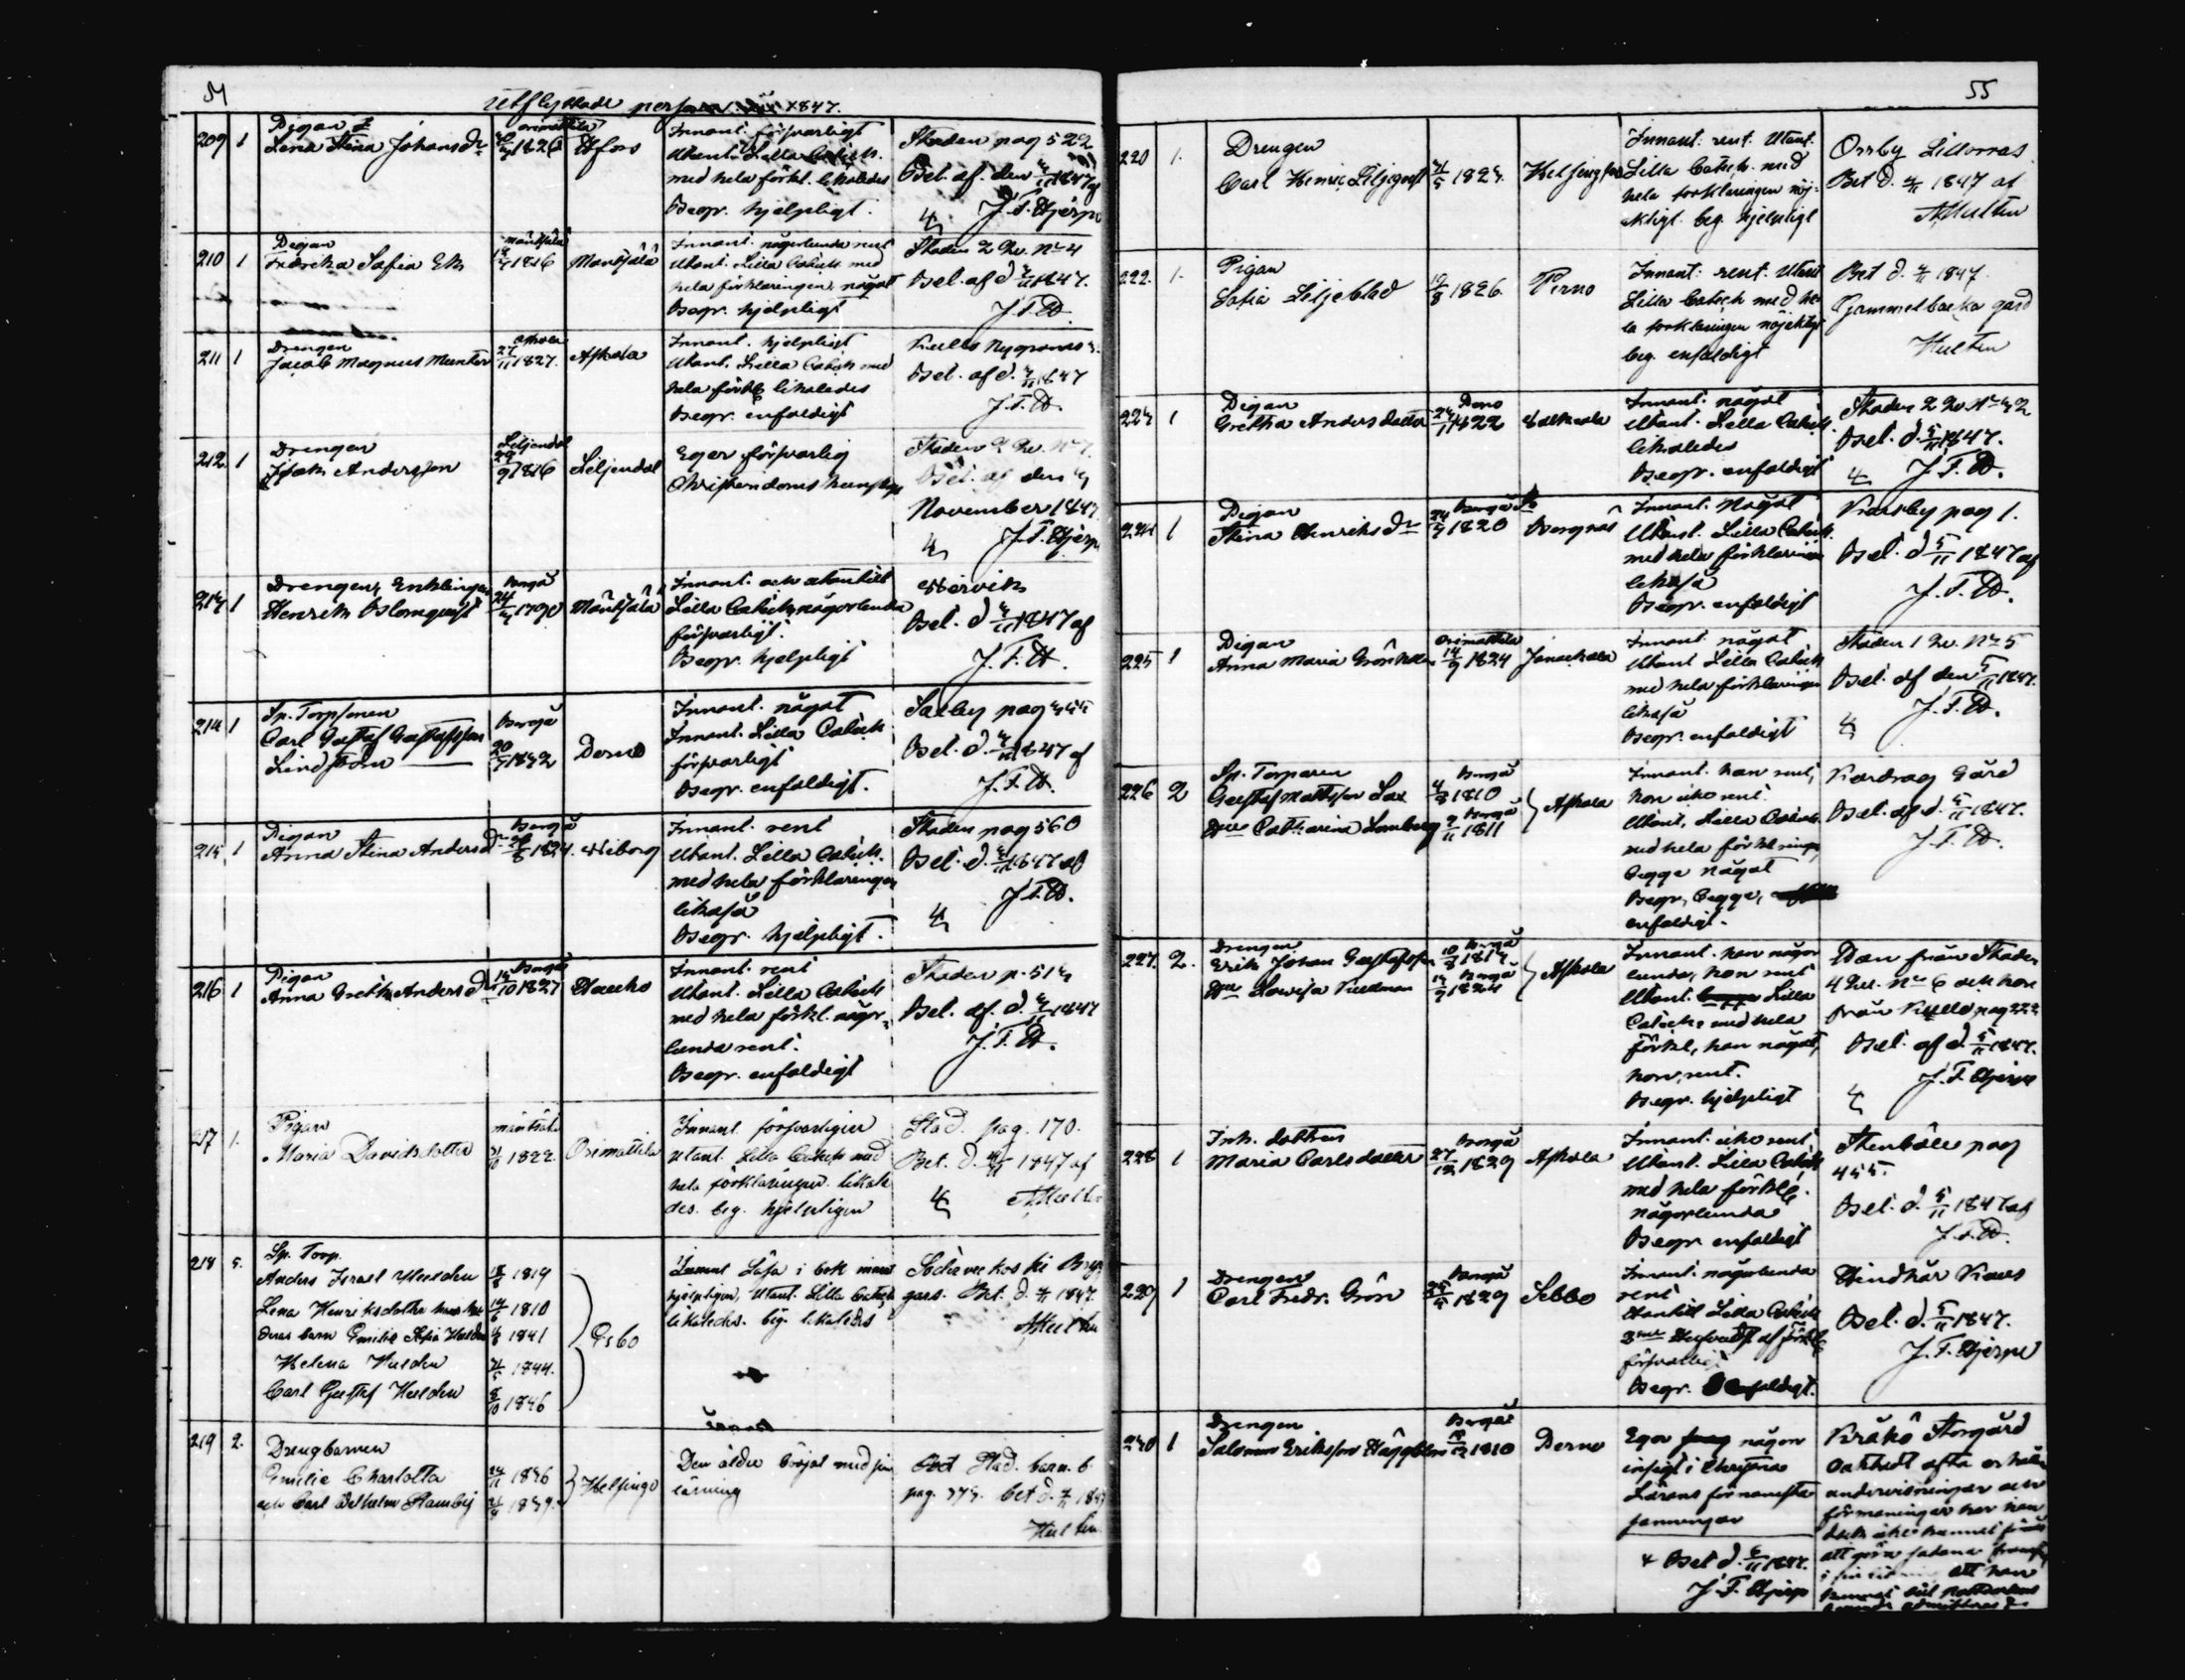 54
utflyttade personer år 1847.
209 1
Pigan
Lena Stina Johansdr
Orimattila
1826
Hfors
Innant. försvarligt
Utant. Lilla Catech.
med hela förkl. likaledes
Begr. hjelpligt.
Staden pag 522
Bet. af. den 4/11 1847 af
J. F. Hjerpe
210 1
Pigan
Fredrika Sofia Ek
Mäntsälä
1816
Mäntsälä
Innant. någorlunda rent
Utant. Lilla Catech. med
hela förklaringen, något
Begr. hjelpligt
Staden 2 Qv. No 4
Bet. af d 4/11 1847.
J. F. H.
211 1
Drengen
Jacob Magnus Munter
Askola
27/11 1827.
Askola
Innant. hjelpligt
Utant. Lilla Catech med
hela förkl. likaledes
Begr. enfaldigt
Kulla Nygrannas
Bet. af d. 4/11 1847
J. F. H.
212. 1
Drengen
Isak Andersson
Liljendal
29/9 1816
Liljendal
Eger försvarlig
Christendoms kunskap
Staden 2 Qv. No 7.
Bet. af den 4
November 1847
J. F. Hjerpe
213 1
Drengen, Enklingen
Henrik Blomqvist
Borgå
24/3 1790
Mäntsälä
Innant. och utantill
Lilla Catech, någorlunda
försvarligt.
Begr. hjelpligt
Wervik
Bet. d 4/11 1847 af
J. F. H.
214 1
Sp. Torpsonen
Carl Gustaf Gustafsson
Lindström
Borgå
20/5 1832
Perno
Innant. något
Innant. Lilla Catech.
försvarligt
Begr. enfaldigt.
Saxby pag
Bet. d. 4/11 1847 af
J. F. H.
215 1
Pigan
Anna Stina Andersdr
Borgå
26/8 1824.
Wiborg
Innant. rent
Utant. Lilla Catech.
med hela förklaringen
likaså
Begr. hjelpligt.
Staden pag 560
Bet. d. 4/11 1847 af
J. F. H.
216 1
Pigan
Anna Gretha Andersdr
Borgå
14/10 1827
Haucho
Innant. rent
Utant. Lilla Catech
med hela förkl. någor-
lunda rent.
Begr. enfaldigt
Staden p. 513
Bet. af. d. 4/11 1847
J. F. H.
217 1.
Pigan
Maria Davidsdotter
Mäntsälä
1822.
Orimattila
Innant försvarligen
Utant. Lilla Catech med
hela förklaringen. likale
des. beg. hjelpligen
Stad. pag. 170.
Bet. d. 4/11 1847 af
AHulten
218 5.
Sp. Torp.
Anders Israel Hulden 1819
Lena Henriksdotter 1810
deras barn Emilie Sofia Hulden 1841
Helena Hulden 1844.
Carl Gustaf Hulden 8/10 1846
Esbo
Läsa i bok innant
hjelpligen, Utant. Lilla Catech
likaledes. beg. likaledes
gård. Bet. d. 4/11 1847.
AHulten
219 2.
Drengbarnen
Emilie Charlotta 24/11 1836
och Carl Wilhelm Ramberg 1839.
Helsinge
Den äldre börjat med sin
lärning
Stad. barn. b.
pag. 373. bet d. 4/11 1847
Hulten
55
220 1.
Drengen
Carl Henric Liljeqvist
1824.
Helsingfors
Innant. rent. Utant.
Lilla Catech. med
hela förklaringen noj-
aktigt. beg. hjelpligt
Orrby Lillorras
Bet d. 4/11 1847 af
AHulten
222. 1.
Pigan
Sofia Liljeblad
10/8 1826.
Perno
Innant: rent. Utant
Lilla Catech med he-
la forklaringen nojaktigt
beg. enfaldigt
Bet d. 4/11 1847.
Gammelbacka gård
Hulten
223 1
Pigan
Gretha Andersdotter
Perno
1822
Walkeala
Innant. något
Utant. Lilla Catech.
likaledes
Begr. enfaldigt
Staden 2 Qv. No 32
Bet. d. 5/11 1847.
J. F. H.
224 1
Pigan
Stina Henriksdr
Borgå
24/9 1820
Borgnäs
Innant. Något
Utant. Lilla Catech.
med hela förklaringen
likaså
Begr. enfaldigt
Karsby pag 1.
Bet. d 5/11 1847 af
J. F. H.
225 1
Pigan
Anna Maria Grönholm
Orimattila
14/9 1824
Janakkala
Innant. något
Utant Lilla Catech
med hela förklaringen
likaså
Begr. enfaldigt
Staden 1 Qv. No 5
Bet. af den 5/11 1847.
J. F. H.
226 2
Sp. Torparen
Gustaf Mattsson Sax
Borgå
4/8 1810
Hu Catharina Lomberg
Borgå
9/11 1811
Askola
Innant. han rent,
hon icke rent.
Utant, Lilla Catech.
med hela förklaringen
begge något
Begr, begge,
enfaldigt.
Kardrag Gård
Bet. af d. 5/11 1847.
J. F. H.
227. 2.
Drengen
Erik Johan Gustafsson
Borgå
10/8 1813
Hu Lowisa Kullman
Borgå
14/9 1824
Askola
Innant. han någor
lunda, hon rent
Utant. Lilla
Catech. med hela
förkl, han något,
hon, rent.
Begr. hjelpligt
Han från Staden
4 Qv. No 6 och hon
från Kulla, pag 222
Bet. af d. 5/11 1847.
J. F. Hjerpe
228 1
Inh. dottren
Maria Carlsdotter
Borgå
27/12 1829
Askola
Innant. icke rent,
Utant. Lilla Catech
med hela förkl.
någorlunda
Begr. enfaldigt
Stensböle pag
455.
Bet. d. 5/11 1847 af
J. F. H.
229 1
Drengen
Carl Fredr. Grön
Borgå
1829
Sibbo
Innant. någorlunda
rent
Utantill Lilla Catech
försvarligt
Begr. enfaldigt.
Hindhår Kaus
Bet. d. 5/11 1847.
J. F. Hjerpe
230 1
Drengen
Salomon Eriksson Häggblom
Borgå
1810
Perno
Eger någon
insigt i Christna
Lärans förnämsta
sanningar
4 Bet d. 6/11 1847.
J. F. Hjerpe
Kråkö Storgård
Oaktadt ofta erhållna
undervisningar och
förmaningar har han
dock icke kunnat
att göra sådana framsteg
att han
kunnat till Nattvardens